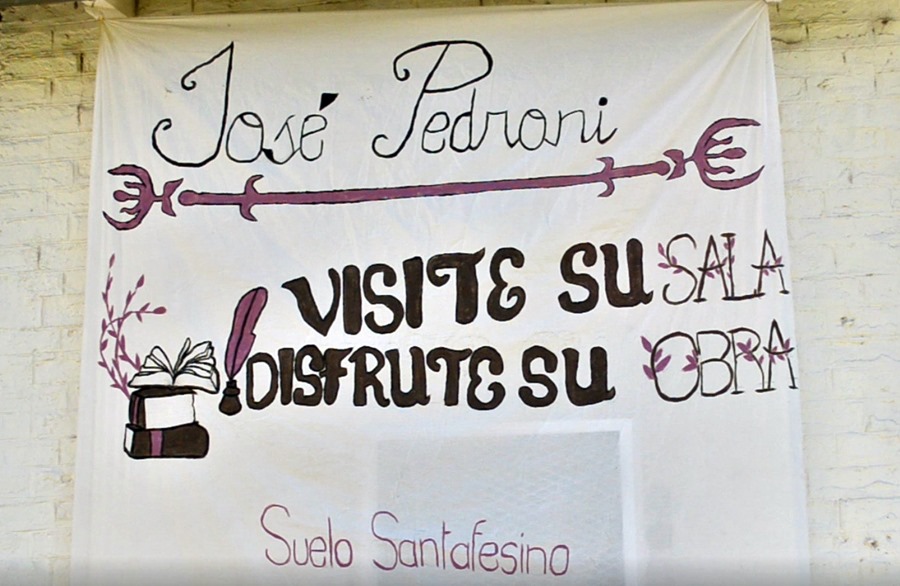 José Pedroni
VISITE SU SALA
DISFRUTE SU OBRA
Suelo Santafesino